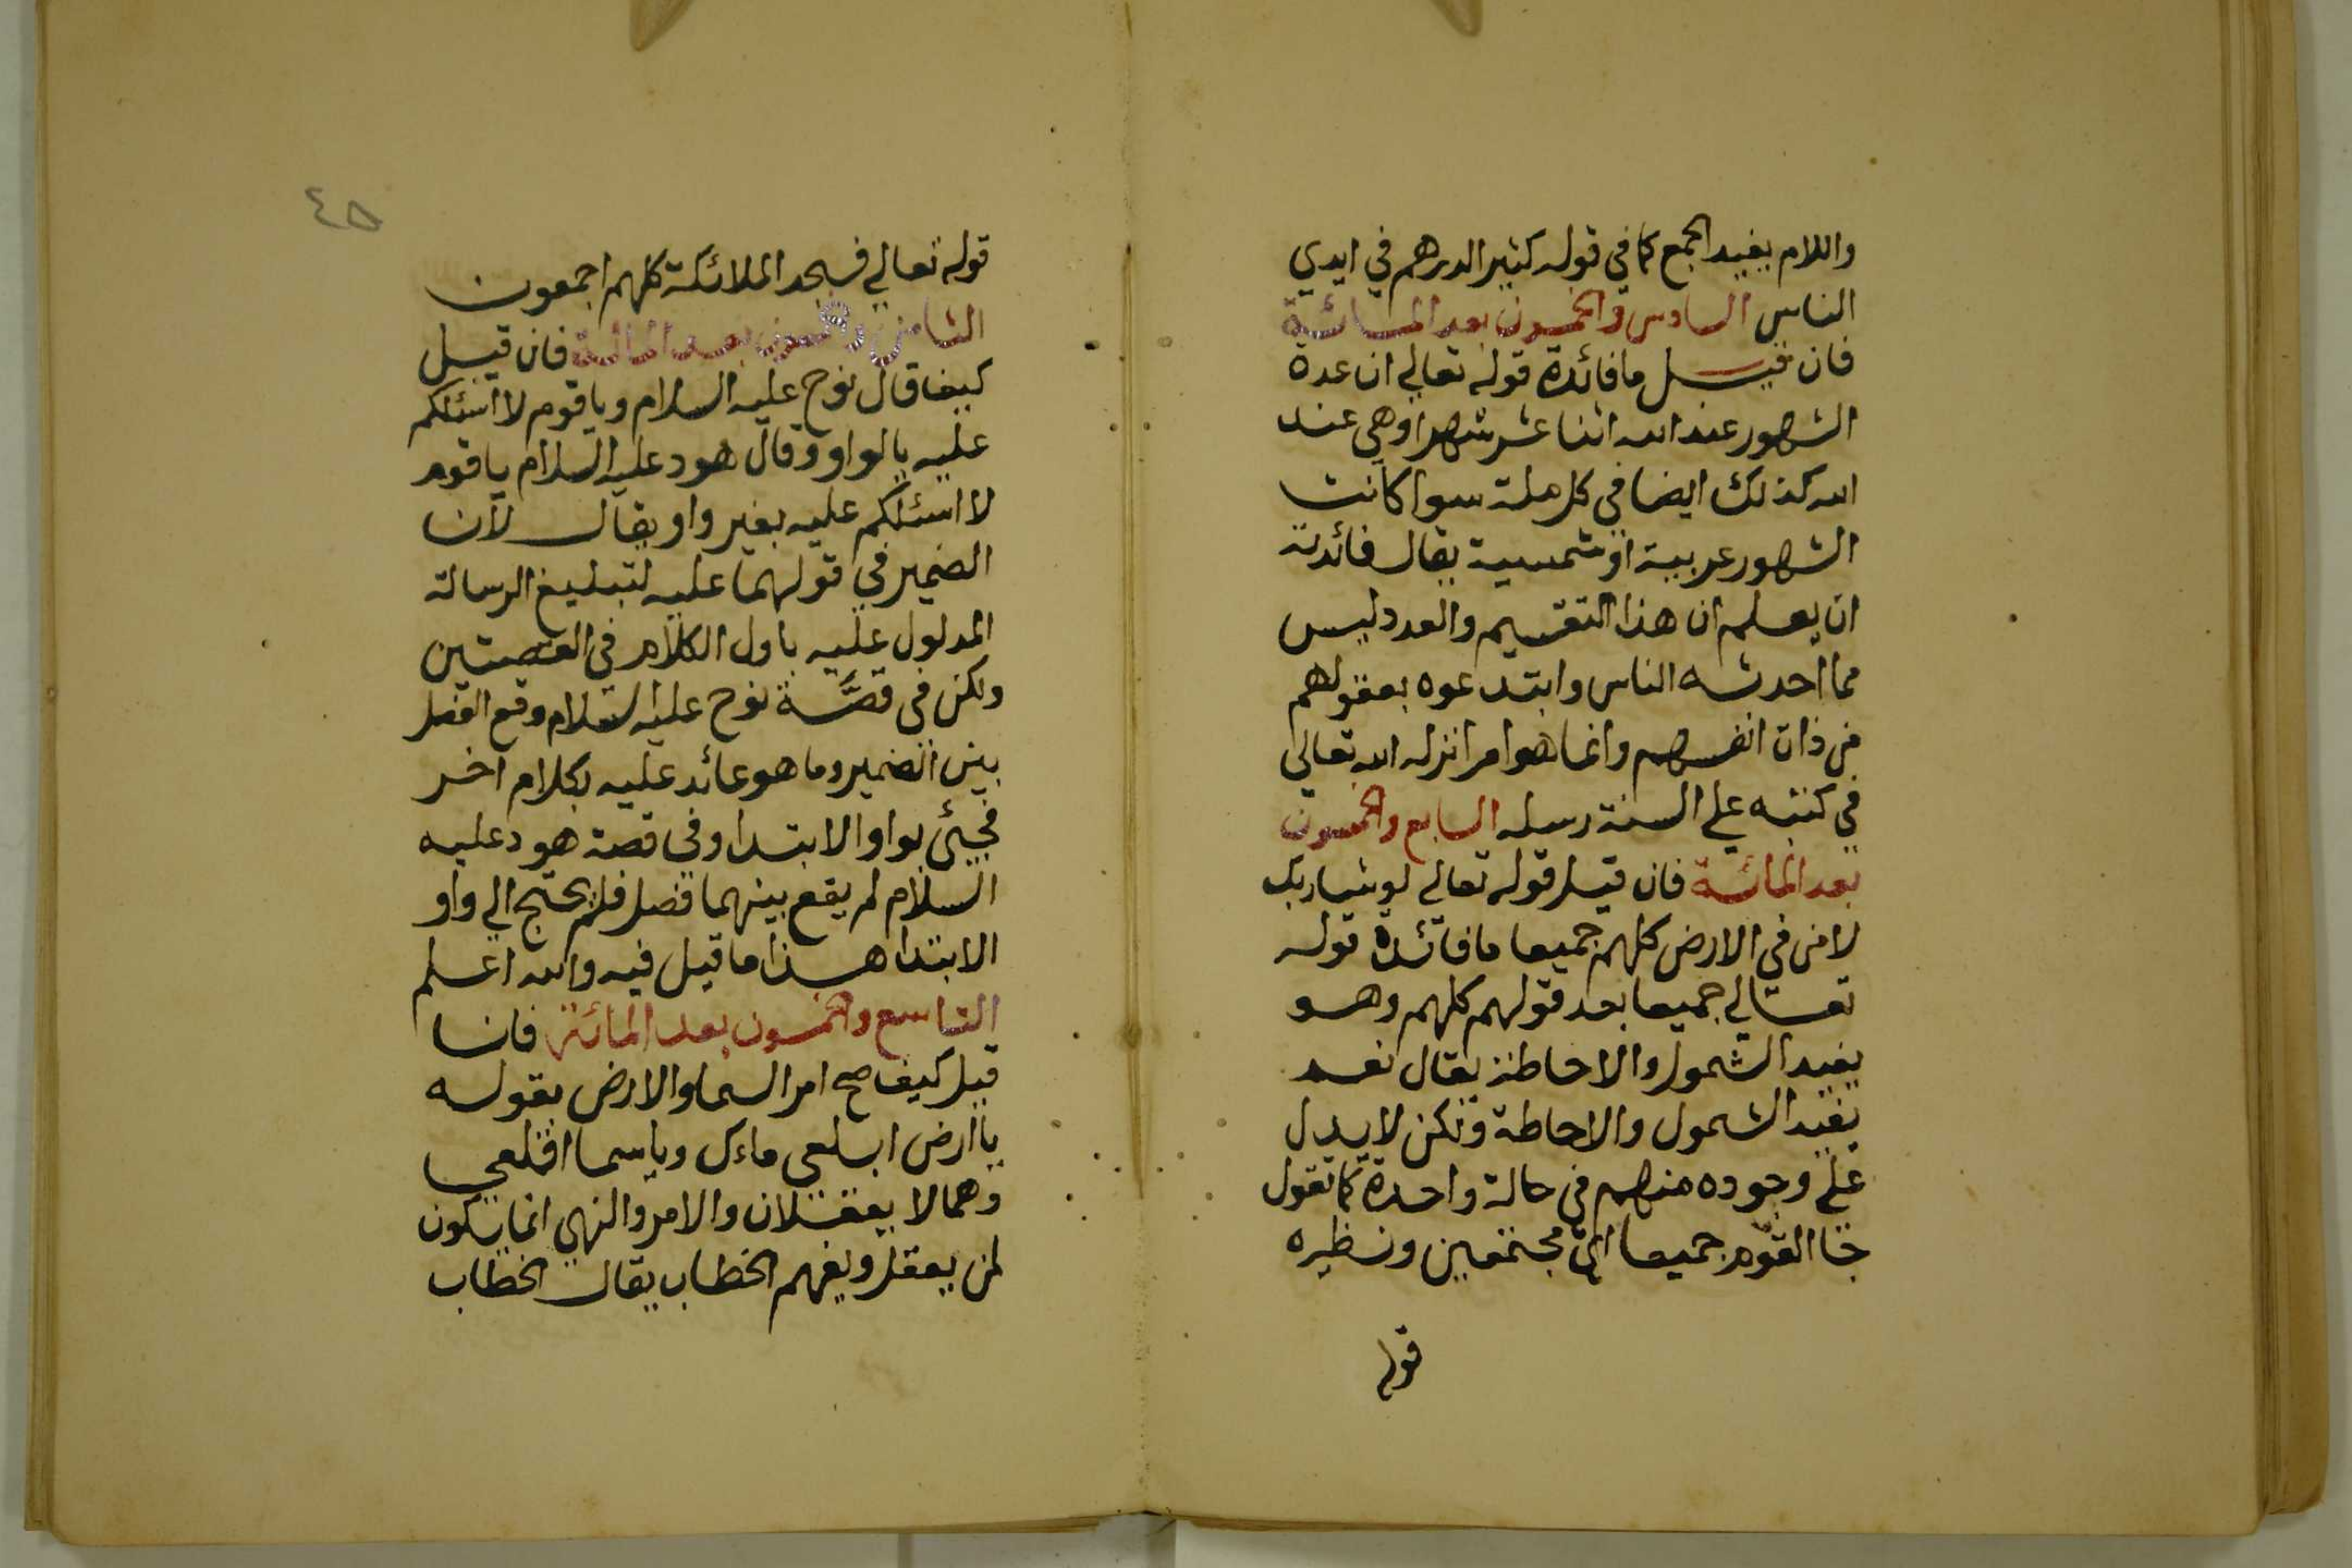 واللام يفيد الجمع كما في قوله كثير الدرهم في ايدي
الناس السادس والخمسون بعد المائة
فان قيل ما فائدة قوله تعالي ان عدة
الشهور عند الله اثنا عشر شهرا وهي عند
الله كذلك ايضا في كل ملة سوا كانت
الشهور عربية او شمسية يقال فائدته
ان يعلم ان هذا التقسيم والعدد ليس
مما احدثه الناس وابتدعوه بعقولهم
من ذات انفسهم وانما هو امر انزله الله تعالي
في كتبه علي السنة رسله السابع والخمسون
بعد المائة فان قيل قوله تعالي لو شا ربك
لامن في الارض كلهم جميعا ما فائدة قوله
تعالي جميعا بعد قولهم كلهم وهو
يفيد الشمول والاحاطة يقال نعم
يفيد الشمول والاحاطة ولكن لا يدل
علي وجوده منهم في حالة واحدة كما تقول
جا القوم جميعا اي مجتمعين ونظيره
قوله
٤٥
قوله تعالي فسجد الملائكة كلهم اجمعون
الثامن والخمسون بعد المائة فان قيل
كيف قال نوح عليه السلام ويا قوم لا اسئلكم
عليه بالواو وقال هود عليه السلام يا قوم
لا اسئلكم عليه بغير واو يقال لان
الضمير في قولهما عليه لتبليغ الرسالة
المدلول عليه باول الكلام في القصتين
ولكن في قصة نوح عليه السلام وقع الفصل
بين الضمير وما هو عائد عليه بكلام اخر
فجيئ بواو الابتدا وفي قصة هود عليه
السلام لم يقع بينهما فصل فلم يحتج الي واو
الابتدا هذا ما قيل فيه والله اعلم
التاسع والخمسون بعد المائة فان
قيل كيف صح امر السما والارض بقوله
يا ارض ابلعي ماءك ويا سما اقلعي
وهما لا يعقلان والامر والنهي انما يكون
لمن يعقل ويفهم الخطاب يقال الخطاب